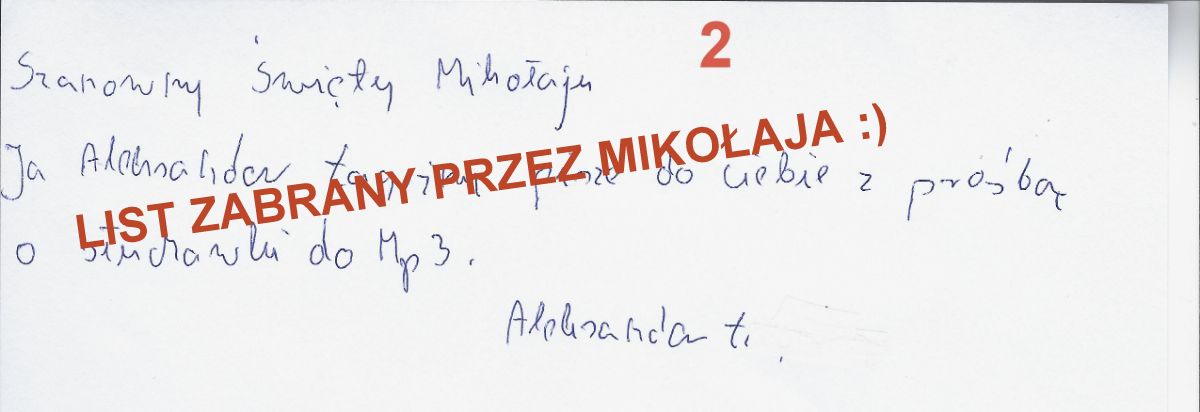 2
Szanowny Święty Mikołaju
Ja Aleksander piszę do ciebie z prośbą
LIST ZABRANY PRZEZ MIKOŁAJA :)
o słuchawki do Mp3.
Aleksander Ł.